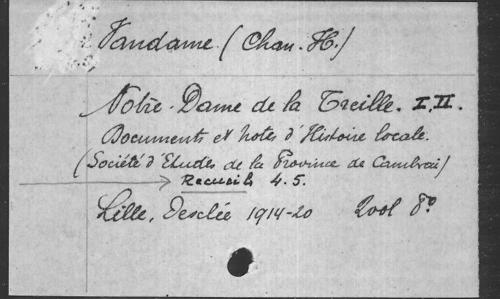 Vandame (Chan. H.)
Notre-Dame de la Treille. I, II.
Documents et notes d'Histoire locale.
(Société d'Etudes de la Province de Cambrai)
Recueils 4. 5.
Lille, Desclée 1914-20 2 vol 8°